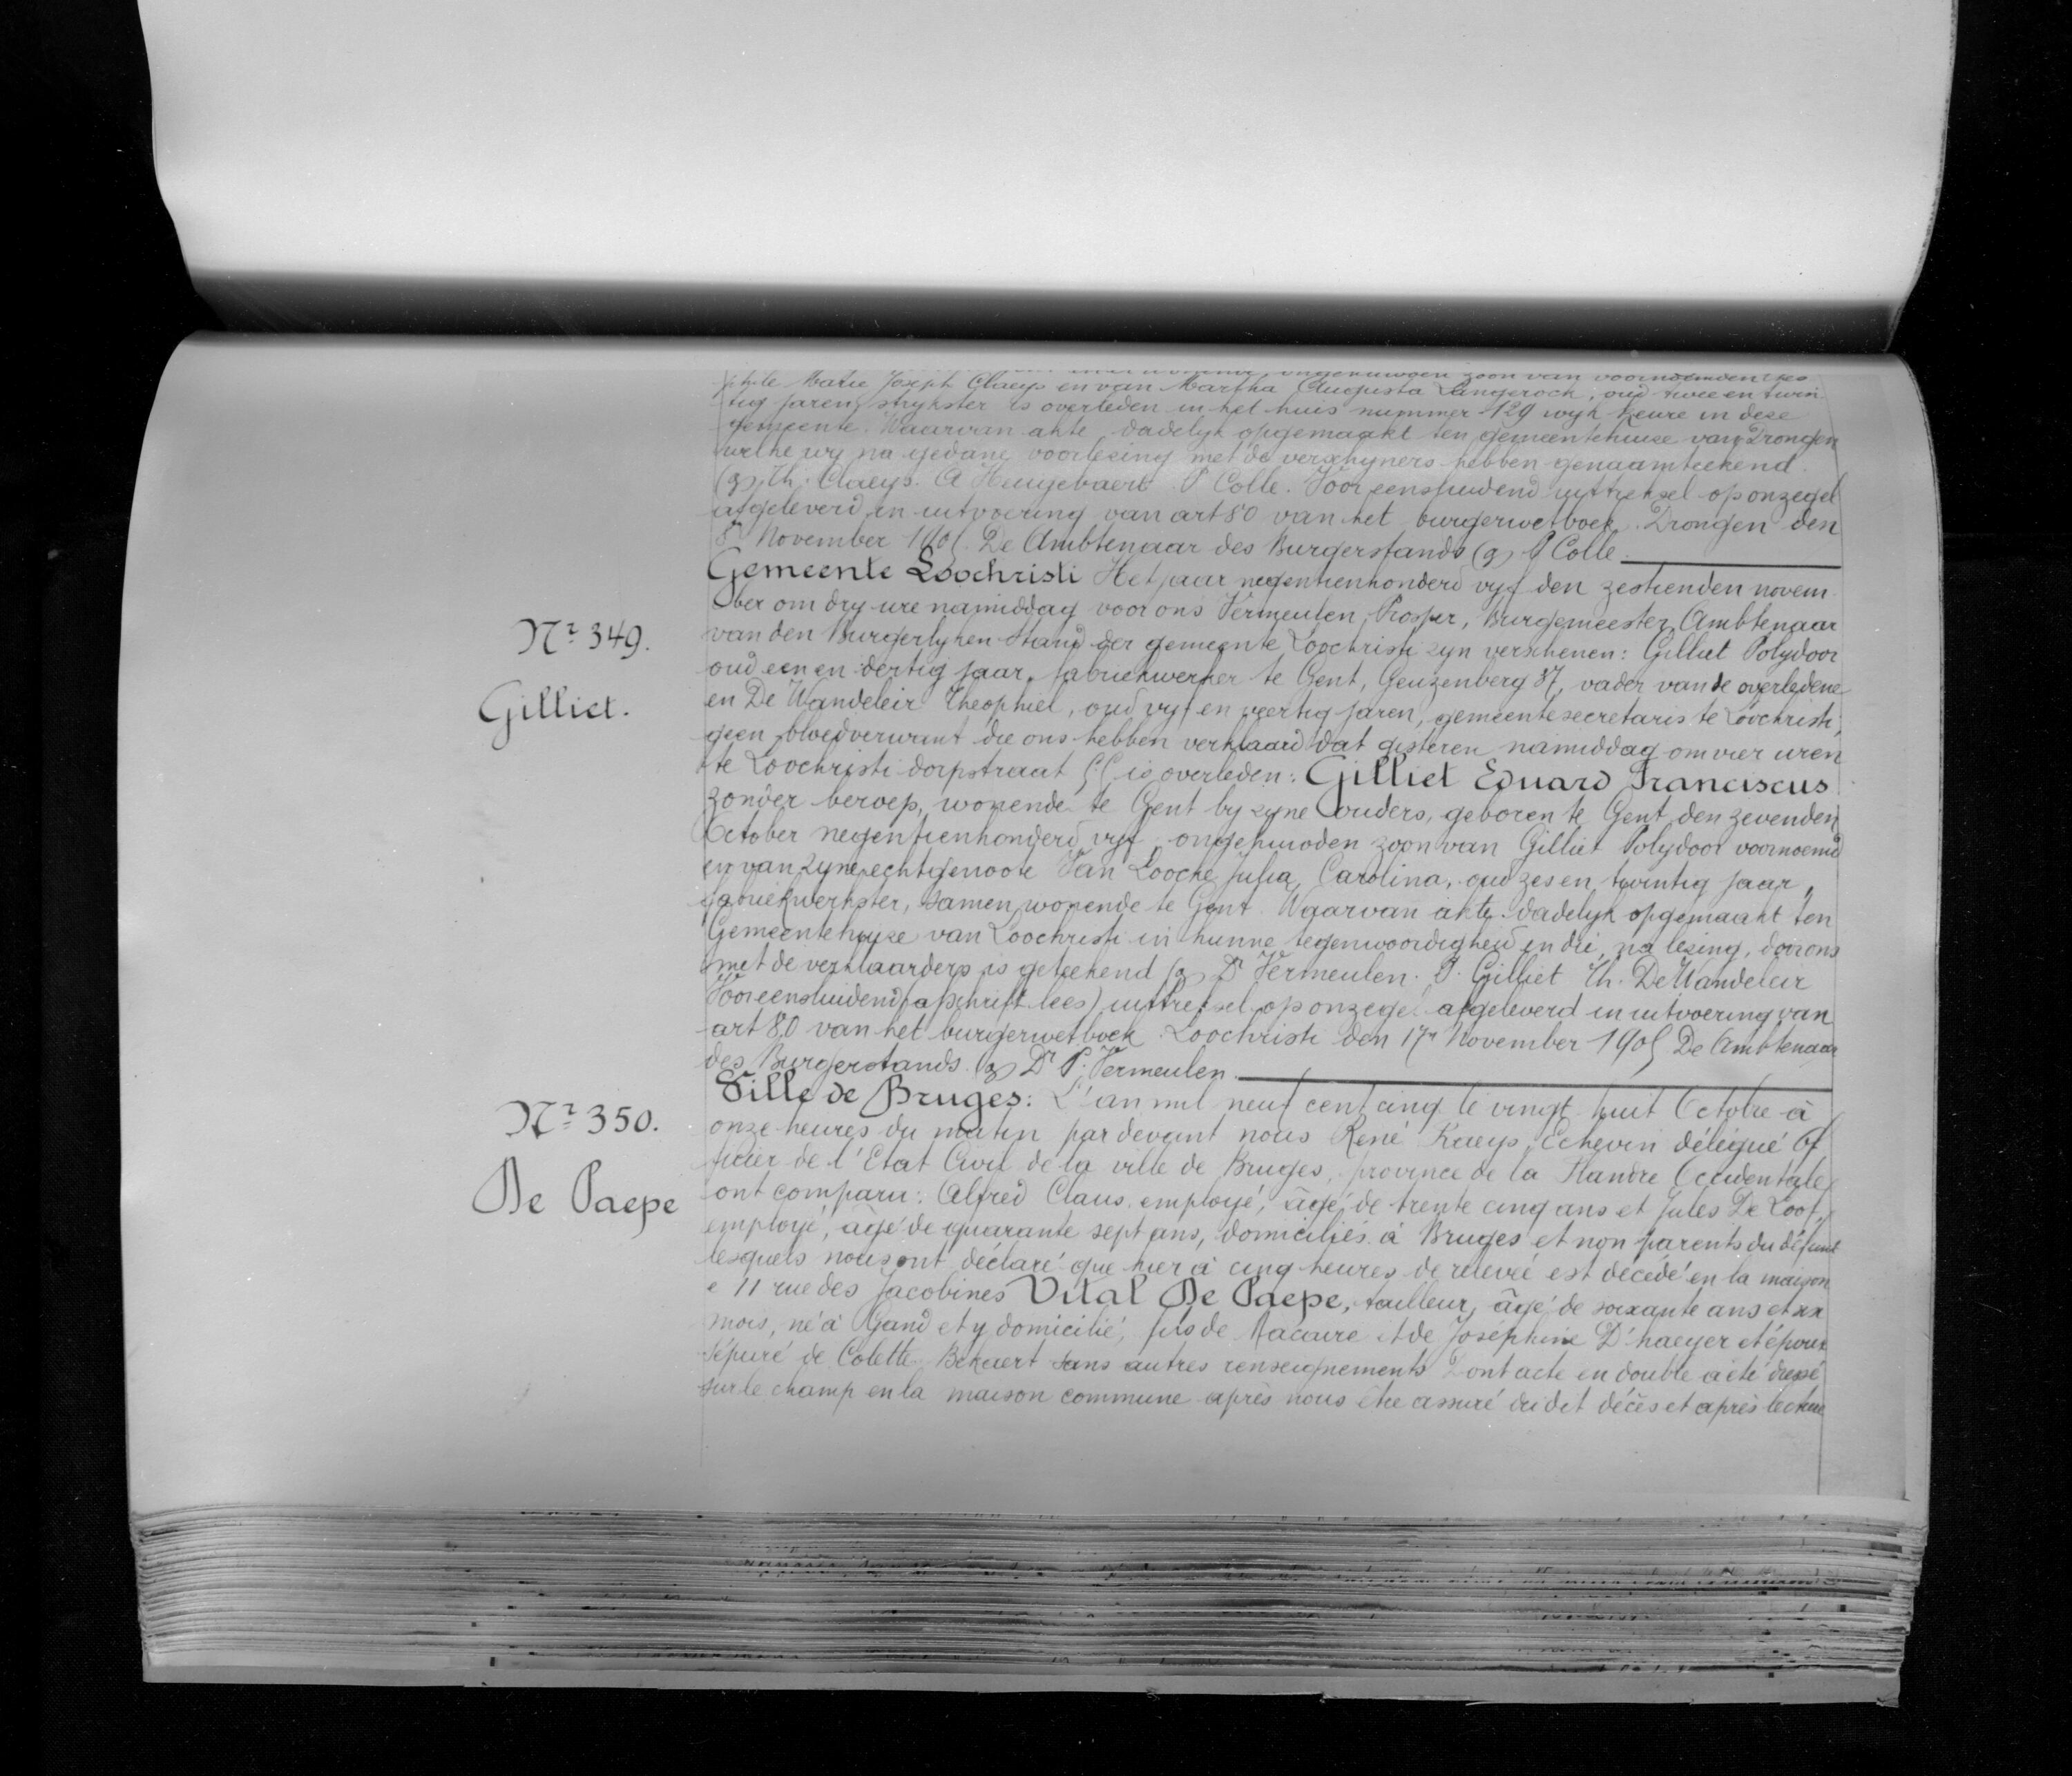 ongehuwden zoon van voornoemden Theo
phile Marie Joseph Claeys en van Martha Augusta Langerock, oud twee en twin
tig jaren, strykster is overleden in het huis nummer 129 wyk Keure in deze
gemeente. Waarvan akte dadelyk opgemaakt ten gemeentehuize van Drongen
welke wy na gedane voorlezing met de verschyners hebben genaamteekend
(g) Th. Claeys. A Heugebaert P Colle. Voor eensluidend uittreksel op onzegel
afgeleverd in uitvoering van art 80 van het burgerwetboek. Drongen den
November 1905. De Ambtenaar des Burgerstands (g) P Colle
Gemeente Loochristi Het jaar negentienhonderd vyf den zestienden novem
ber om dry ure namiddag voor ons Vermeulen, Prosper, Burgemeester Ambtenaar
Nr 349.
van den Burgerlyken Stand der gemeente Loochristi zyn verschenen: Gilliet Polydoor
oud een en dertig jaar, fabriekwerker te Gent, Geuzenberg 87, vader van de overledene
Gilliet.
en De Wandeleir Theophiel, oud vyf en veertig jaren, gemeentesecretaris te Loochristi,
geen bloedverwant die ons hebben verklaard dat gisteren namiddag om vier uren
te Loochristi dorpstraat 55 is overleden: Gilliet Eduard Franciscus
zonder beroep, wonende te Gent by zyne ouders, geboren te Gent den zevenden
October negentienhonderd vyf, ongehuwden zoon van Gilliet Polydoor voornoemd
en van zyne echtgenoote Van Loocke Julia, Carolina, oud zes en twintig jaar,
fabriekwerkster, samen wonende te Gent. Waarvan akte dadelyk opgemaakt ten
Gemeentehuyze van Loochristi in hunne tegenwoordigheid en die, na lezing, door ons
met de verklaarders is geteekend (g) Dr Vermeulen. P. Gilliet Th. De Wandeleir
Voor eensluidend (afschrift lees) uittreksel op onzegel afgeleverd in uitvoering van
art 80 van het burgerwetboek. Loochristi den 17n November 1905 De Ambtenaar
des Burgerstands (g) Dr P. Vermeulen
Ville de Bruges: L'an mil neuf cent cinq le vingt huit Octobre à
Nr 350.
onze heures du matin par devant nous René Kaeys, Echevin délégué Of
ficier de l'Etat Civil de la ville de Bruges, province de la Flandre Occidentale
De Paepe
ont comparu: Alfred Claus employé, âgé de trente cinq ans et Jules De Loof,
employé, âgé de quarante sept ans, domiciliés à Bruges et non parents du défunt
lesquels nous ont déclaré que hier à cinq heures de relevée est décédé en la maison
11 rue des Jacobines Vital De Paepe, tailleur, âgé de soixante ans et six
mois, né à Gand et y domicilié, fils de Macaire et de Joséphine D'haeyer et époux
séparé de Colette Bekaert sans autres renseignements Dont acte en double a été dressé
sur le champ en la maison commune après nous être assuré du dit décès et après lecture